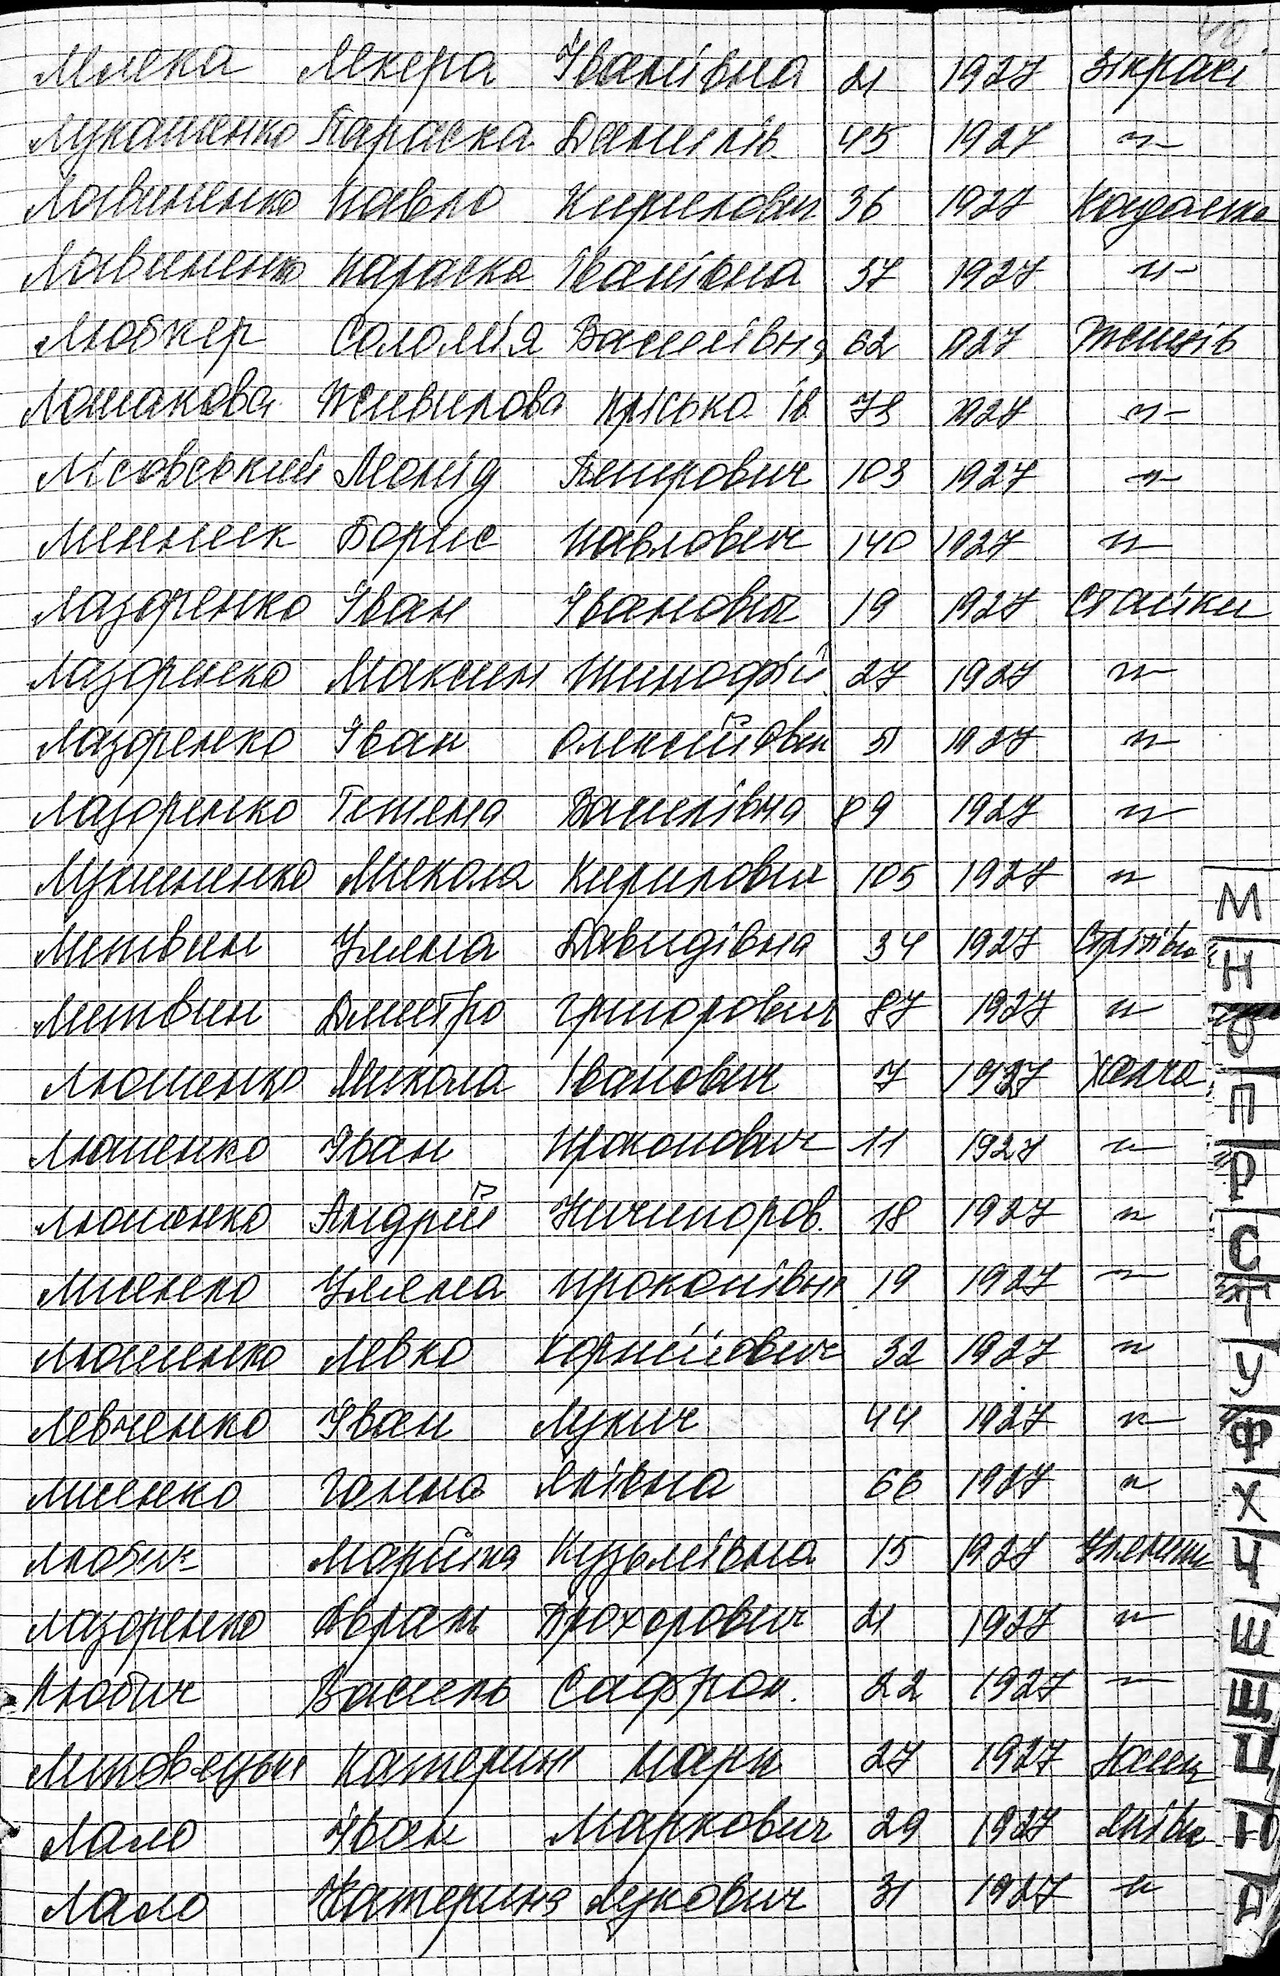 40.
Лилека Лекера Іванівна 21 1927 Зікрачі
Лукашенко Параска Данилів. 45 1927 -"-
Логвиненко Павло Кирилович 36 1927 Кагарлик
Логвиненко Параска Іванівна 57 1927 -"-
Любчер Соломія Василівна 62 1927 Жиців
Ломакова Пріська Ів 73 1927 -"-
Лісовський Леонід Петрович 103 1927 -"-
Борис Павлович 140 1927 -"-
Лазоренко Іван Іванович 19 1927 Стайки
Лазоренко Максим Тимофій. 27 1927 -"-
Лазоренко Іван Олексійович 51 1927 -"-
Лазоренко Тетяна Василівна 89 1927 -"-
Лукиненко Микола Кирилович 105 1927 -"-
Литвин Уляна Давидівна 34 1927 Стрітівка
Литвин Дмитро Григорович 87 1927 -"-
Люшенко Микола Іванович 7 1927 Халча
Люшенко Іван Прокопович 11 1927 -"-
Люшенко Андрій Ничипоров. 18 1927 -"-
Лисенко Уляна Прокопівна 19 1927 -"-
Люшенко Левко Корнійович 32 1927 -"-
Левченко Іван Лукич 44 1927 -"-
Лисенко Ганна Яківна 66 1927 -"-
Любич Марійка Кузьмівна 15 1927 Уляники
Лазоренко Аврам Прохорович 21 1927 -"-
Любич Василь Сафрон. 22 1927 -"-
Катерин Марк 27 1927
Лало Іван Маркович 29 1927
Лало Катерина Лукович 31 1927 -"-
М
Н
О
П
Р
С
Т
У
Ф
Х
Ч
Ш
Щ
Ц
Ю
Я